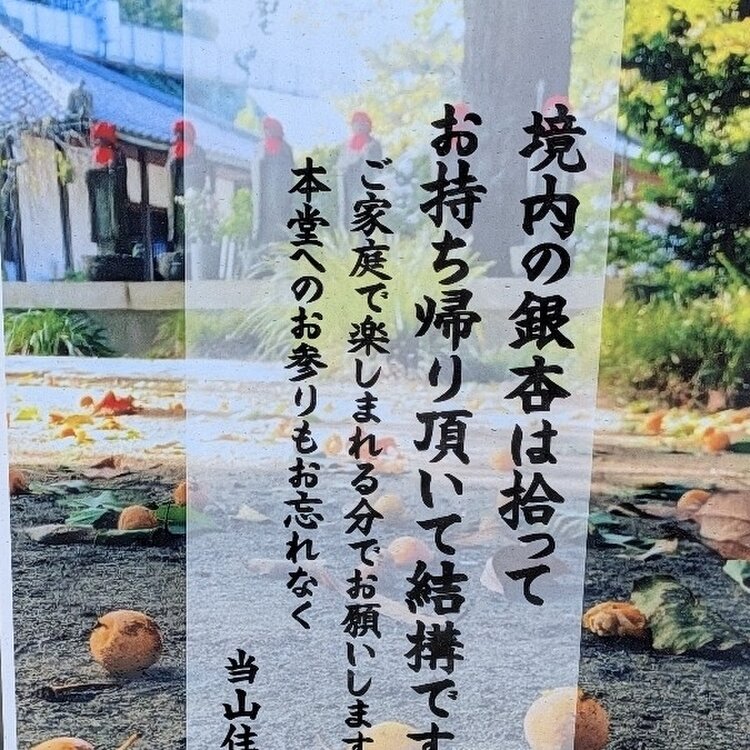 境内の銀杏は拾って
お持ち帰り頂いて結構です
ご家庭で楽しまれる分でお願いします
本堂へのお参りもお忘れなく
当山住